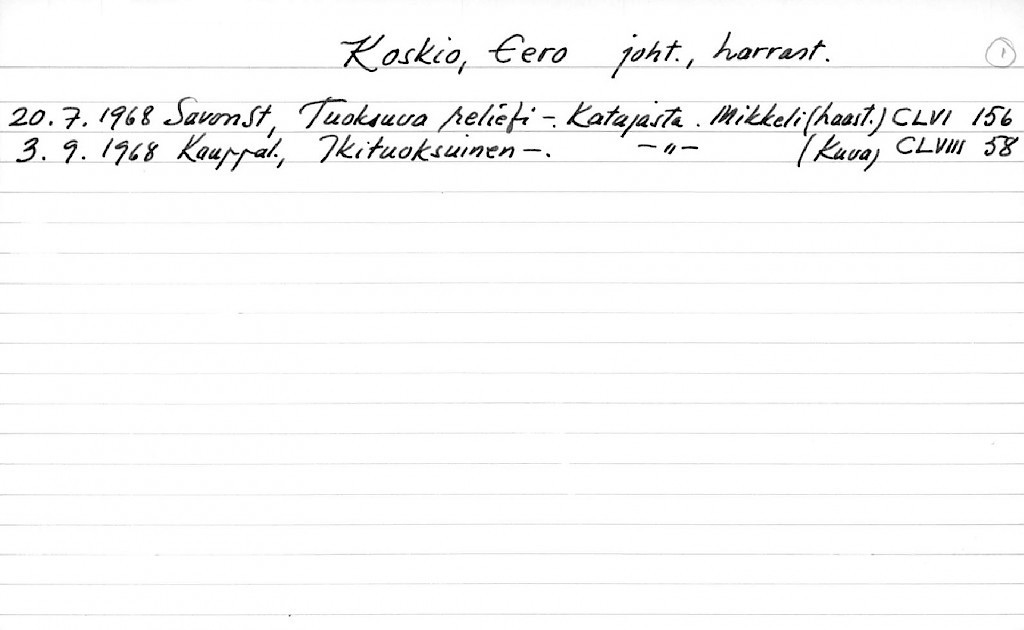 Koskio, Eero joht., harrast. 1
20.7.1968 SavonSt, Tuoksuva reliefi -. Katajasta. Mikkeli (haast.) CLVI 156
3.9.1968 Kauppal., Ikituoksuinen -. -"- (Kuva) CLVIII 58